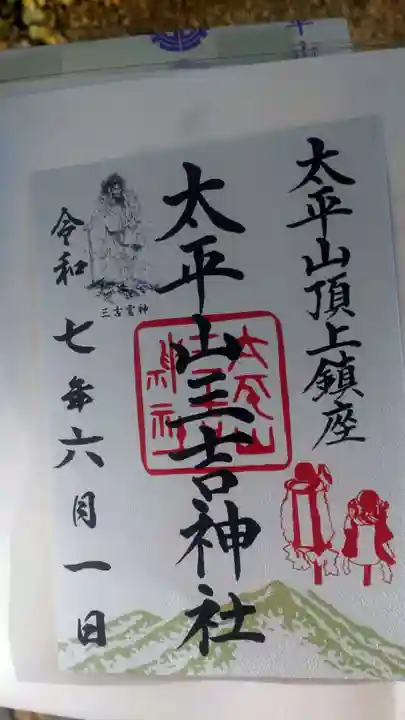 太平山頂上鎮座
太平山三吉神社
太平山
三吉
神社
三吉霊神
令和七年六月一日